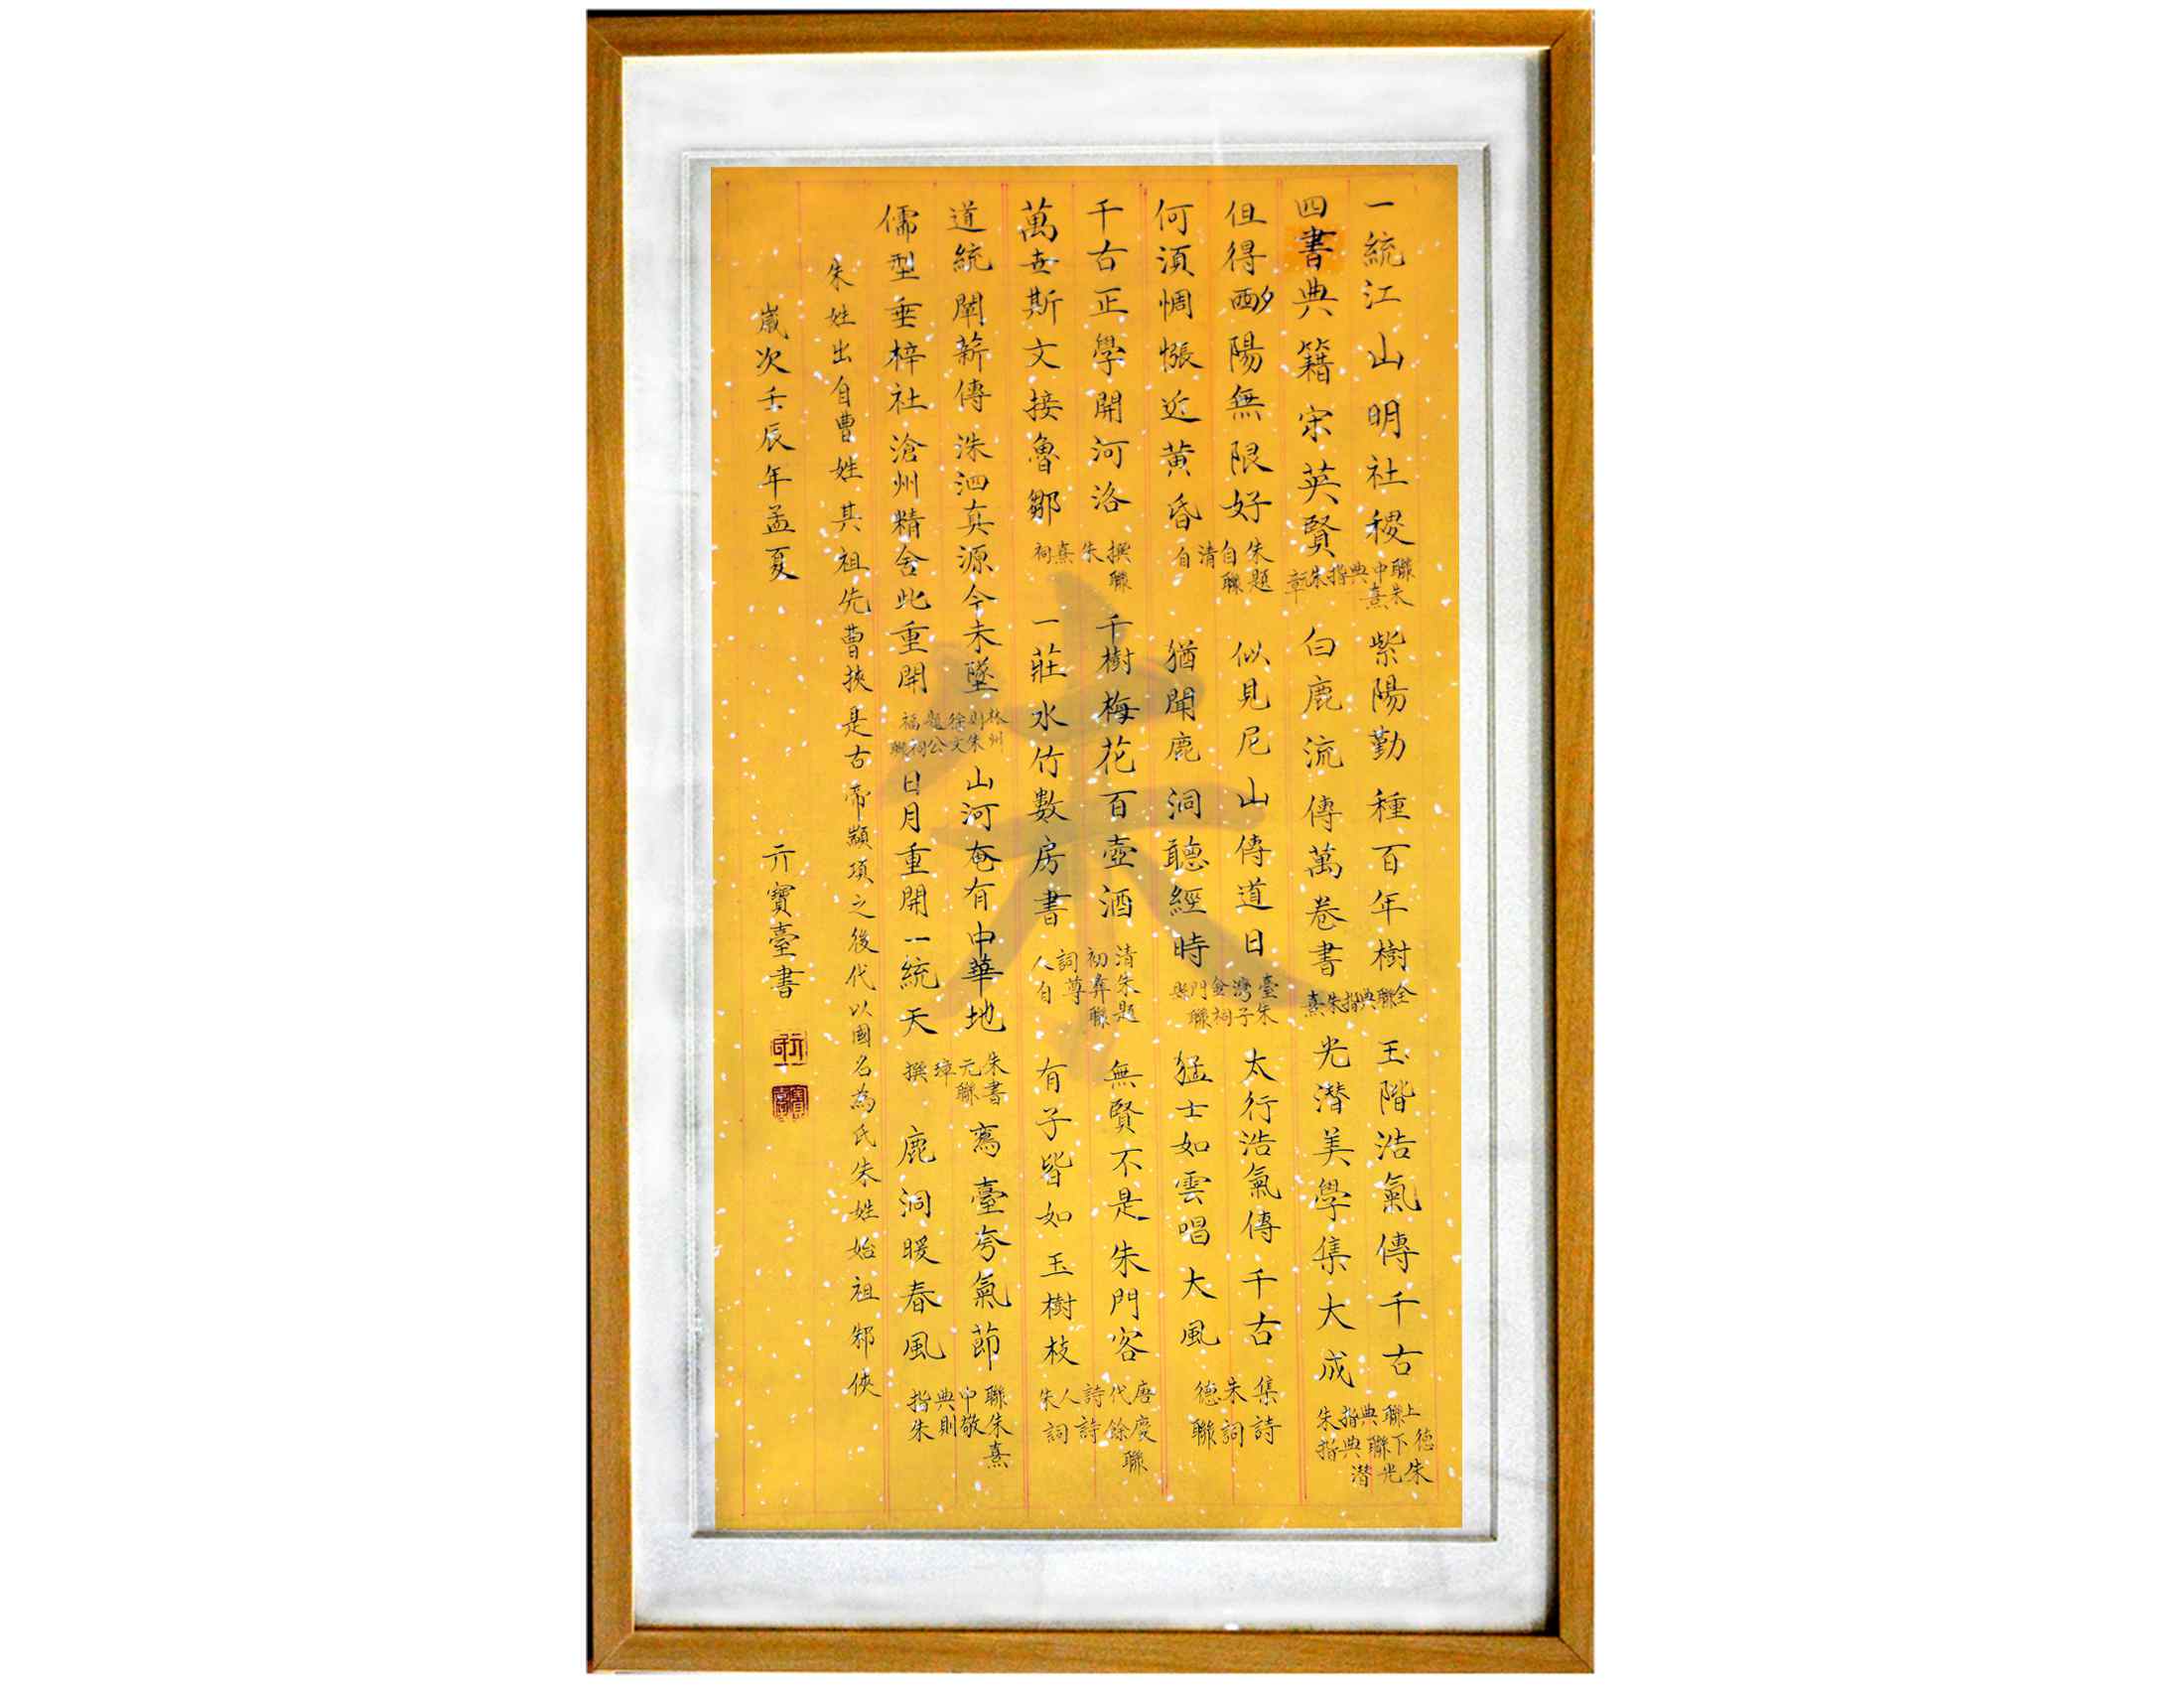 一統江山明社稷 紫陽勤種百年樹 玉階浩氣傳千古
四書典籍宋英賢 白鹿流傳萬卷書 光潛美學集大成
聯中典指朱章
朱熹
全聯典指朱熹
上聯典指朱
德下聯典指
朱光潛
但得夕陽無限好 似見尼山傳道日 太行浩氣傳千古
何須惆悵近黃昏 猶聞鹿洞聽經時 猛士如雲唱大風
朱自清自
題聯
臺灣金門與
朱子祠聯
集朱德
詩詞聯
千古正學開河洛 千樹梅花百壺酒 無賢不是朱門客
萬世斯文接魯鄒 一莊水竹數房書 有子皆如玉樹枝
撰朱熹祠
聯
清初詞人
朱彝尊自
題聯
唐代詩人朱
慶餘詩詞
聯
道統闡薪傳洙泗真源今未墜 山河奄有中華地 鸞臺夸氣節
儒型垂梓社滄州精舍此重開 日月重開一統天 鹿洞暖春風
林則徐題福
州朱文公祠聯
朱元璋撰
書聯
聯中典指
朱敬則朱
熹
朱姓出自曹姓其祖先曹挾是古帝顓頊之後代以國名為氏朱姓始祖邾俠
歲次壬辰年孟夏 亓寶臺書